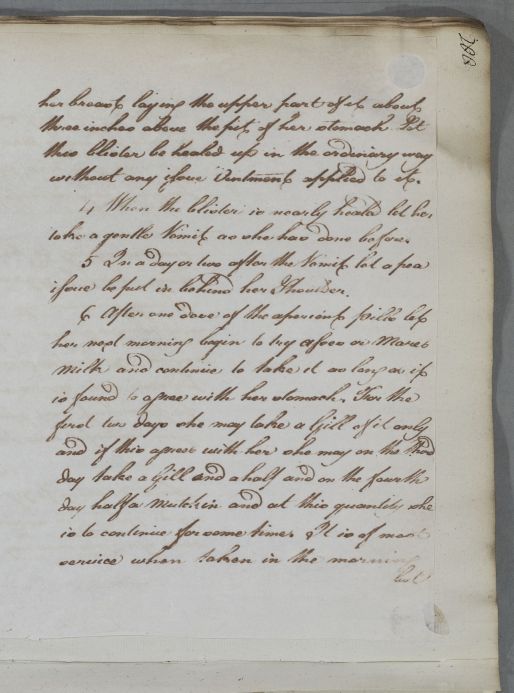 her breast laying the upper part of it about
three inches above the pit of her stomach Let
this blister be healed up in the ordinary way
without any issue Ointment applied to it.
4 When the blister is nearly heald let her
take a gentle Vomit as she has done before.
5 In a day or two after the Vomit let a pea
issue be put in behind her Shoulder.
6 After one dose of the aperient pills let
her next morning begin to try asses or Mares
milk and continue to take it as long as it
is found to agree with her stomach. For the
first two days she may take a Gill of it only
and if this agrees with her she may on the third
day take a Gill and a half and on the fourth
day half a Mutchkin and at this quantity she
is to continue for some time. It is of most
service when taken in the morning
but